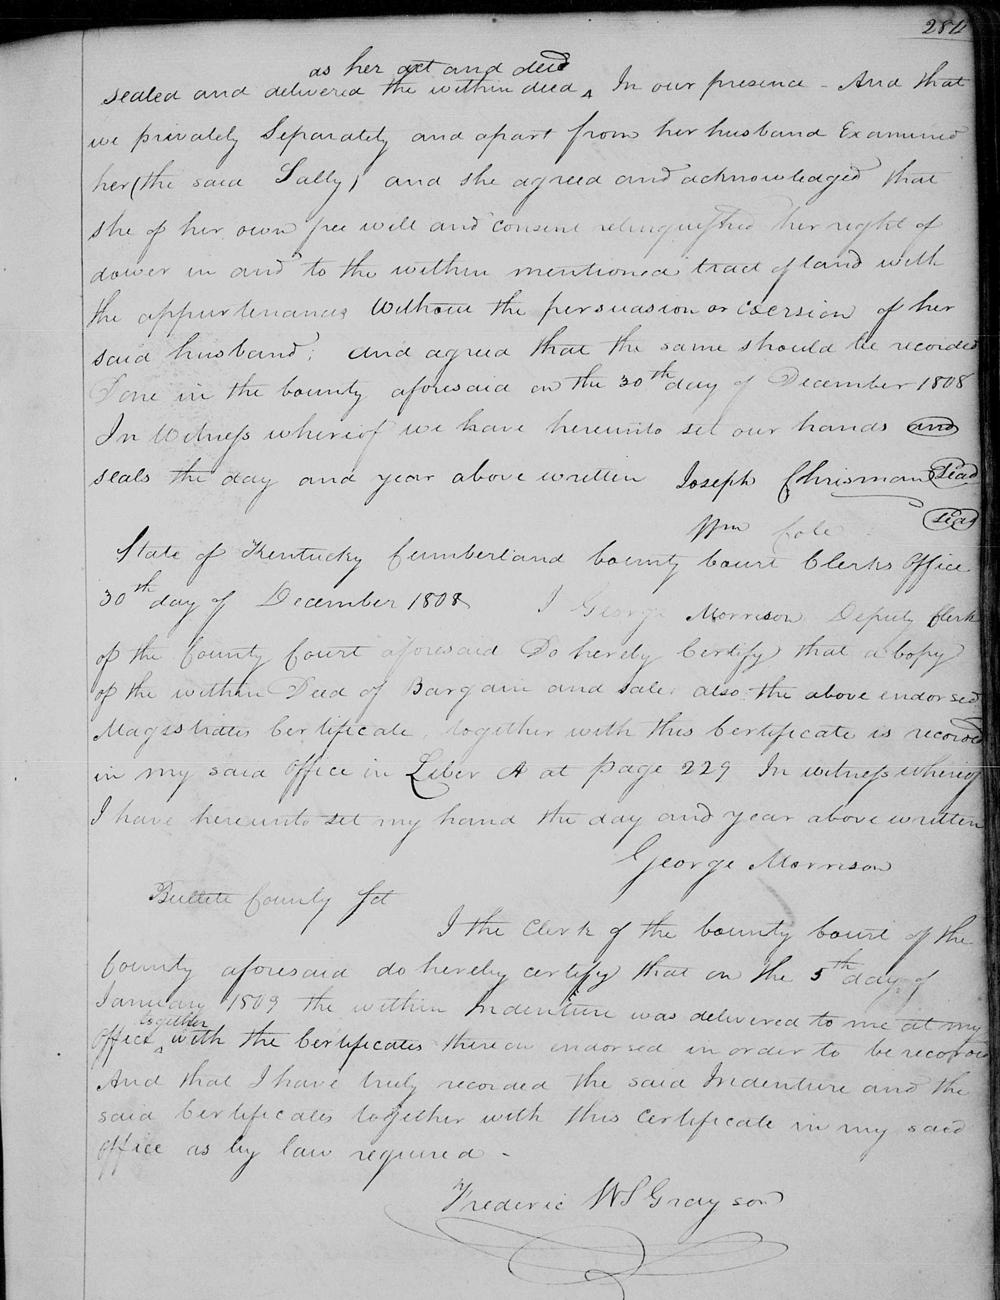 284
as her act and deed
sealed and delivered the within deed ^ In our presence - And that
we privately Separately and apart from her husband Examined
her (the said Sally) and she agreed and acknowledged that
she of her own free will and consent relinquished her right of
dower in and to the within mentioned tract of land with
the appurtenances Without the persuasion or coersion of her
said husband; and agreed that the same should be recorded
Done in the County aforesaid on the 30th day of December 1808
In Witness whereof we have hereunto set our hands and
seals the day and year above written Joseph Chrisman Seal
Wm Cole Seal
State of Kentucky Cumberland County Court Clerks Office
30th day of December 1808 I George Morrison Deputy Clerk
of the County Court aforesaid Do hereby Certify that a Copy
of the within Deed of Bargain and sale also the above endorsed
Magistrates Certificate, together with this Certificate is recorded
in my said Office in Liber A at page 229 In witness whereof
I have hereunto set my hand the day and year above written
George Morrison
Bullitt County Sct
I the Clerk of the County Court of the
County aforesaid do hereby certify that on the 5th day of
January 1809 the within Indenture was delivered to me at my
together
Office ^ with the Certificates thereon endorsed in order to be recorded
And that I have truly recorded the said Indenture and the
said Certificates together with this Certificate in my said
Office as by law required -
Frederic WS Grayson